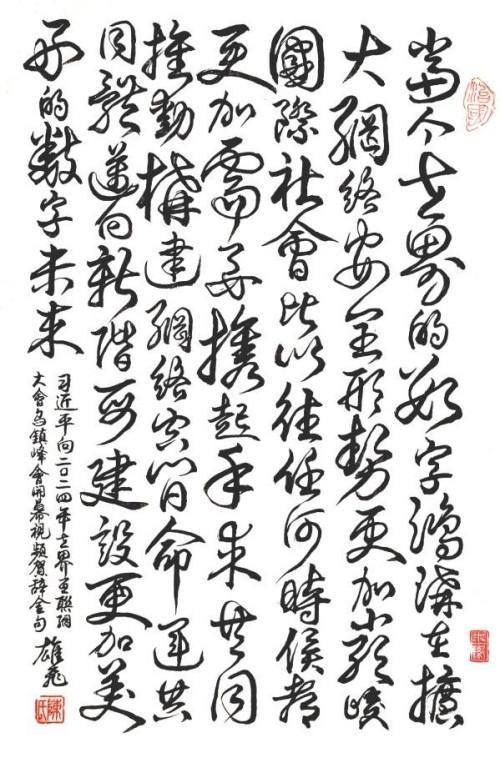 當今世界的數字鴻溝在擴
大網絡安全形勢更加嚴峻
國際社會比以往任何時候都
更加需要攜起手來共同
推動構建網絡空間命運共
同體邁向新階段建設更加美
好的數字未來
习近平向二〇二四年世界互聯網
大會烏鎮峰會開幕視頻賀辭金句 雄飛
陳氏